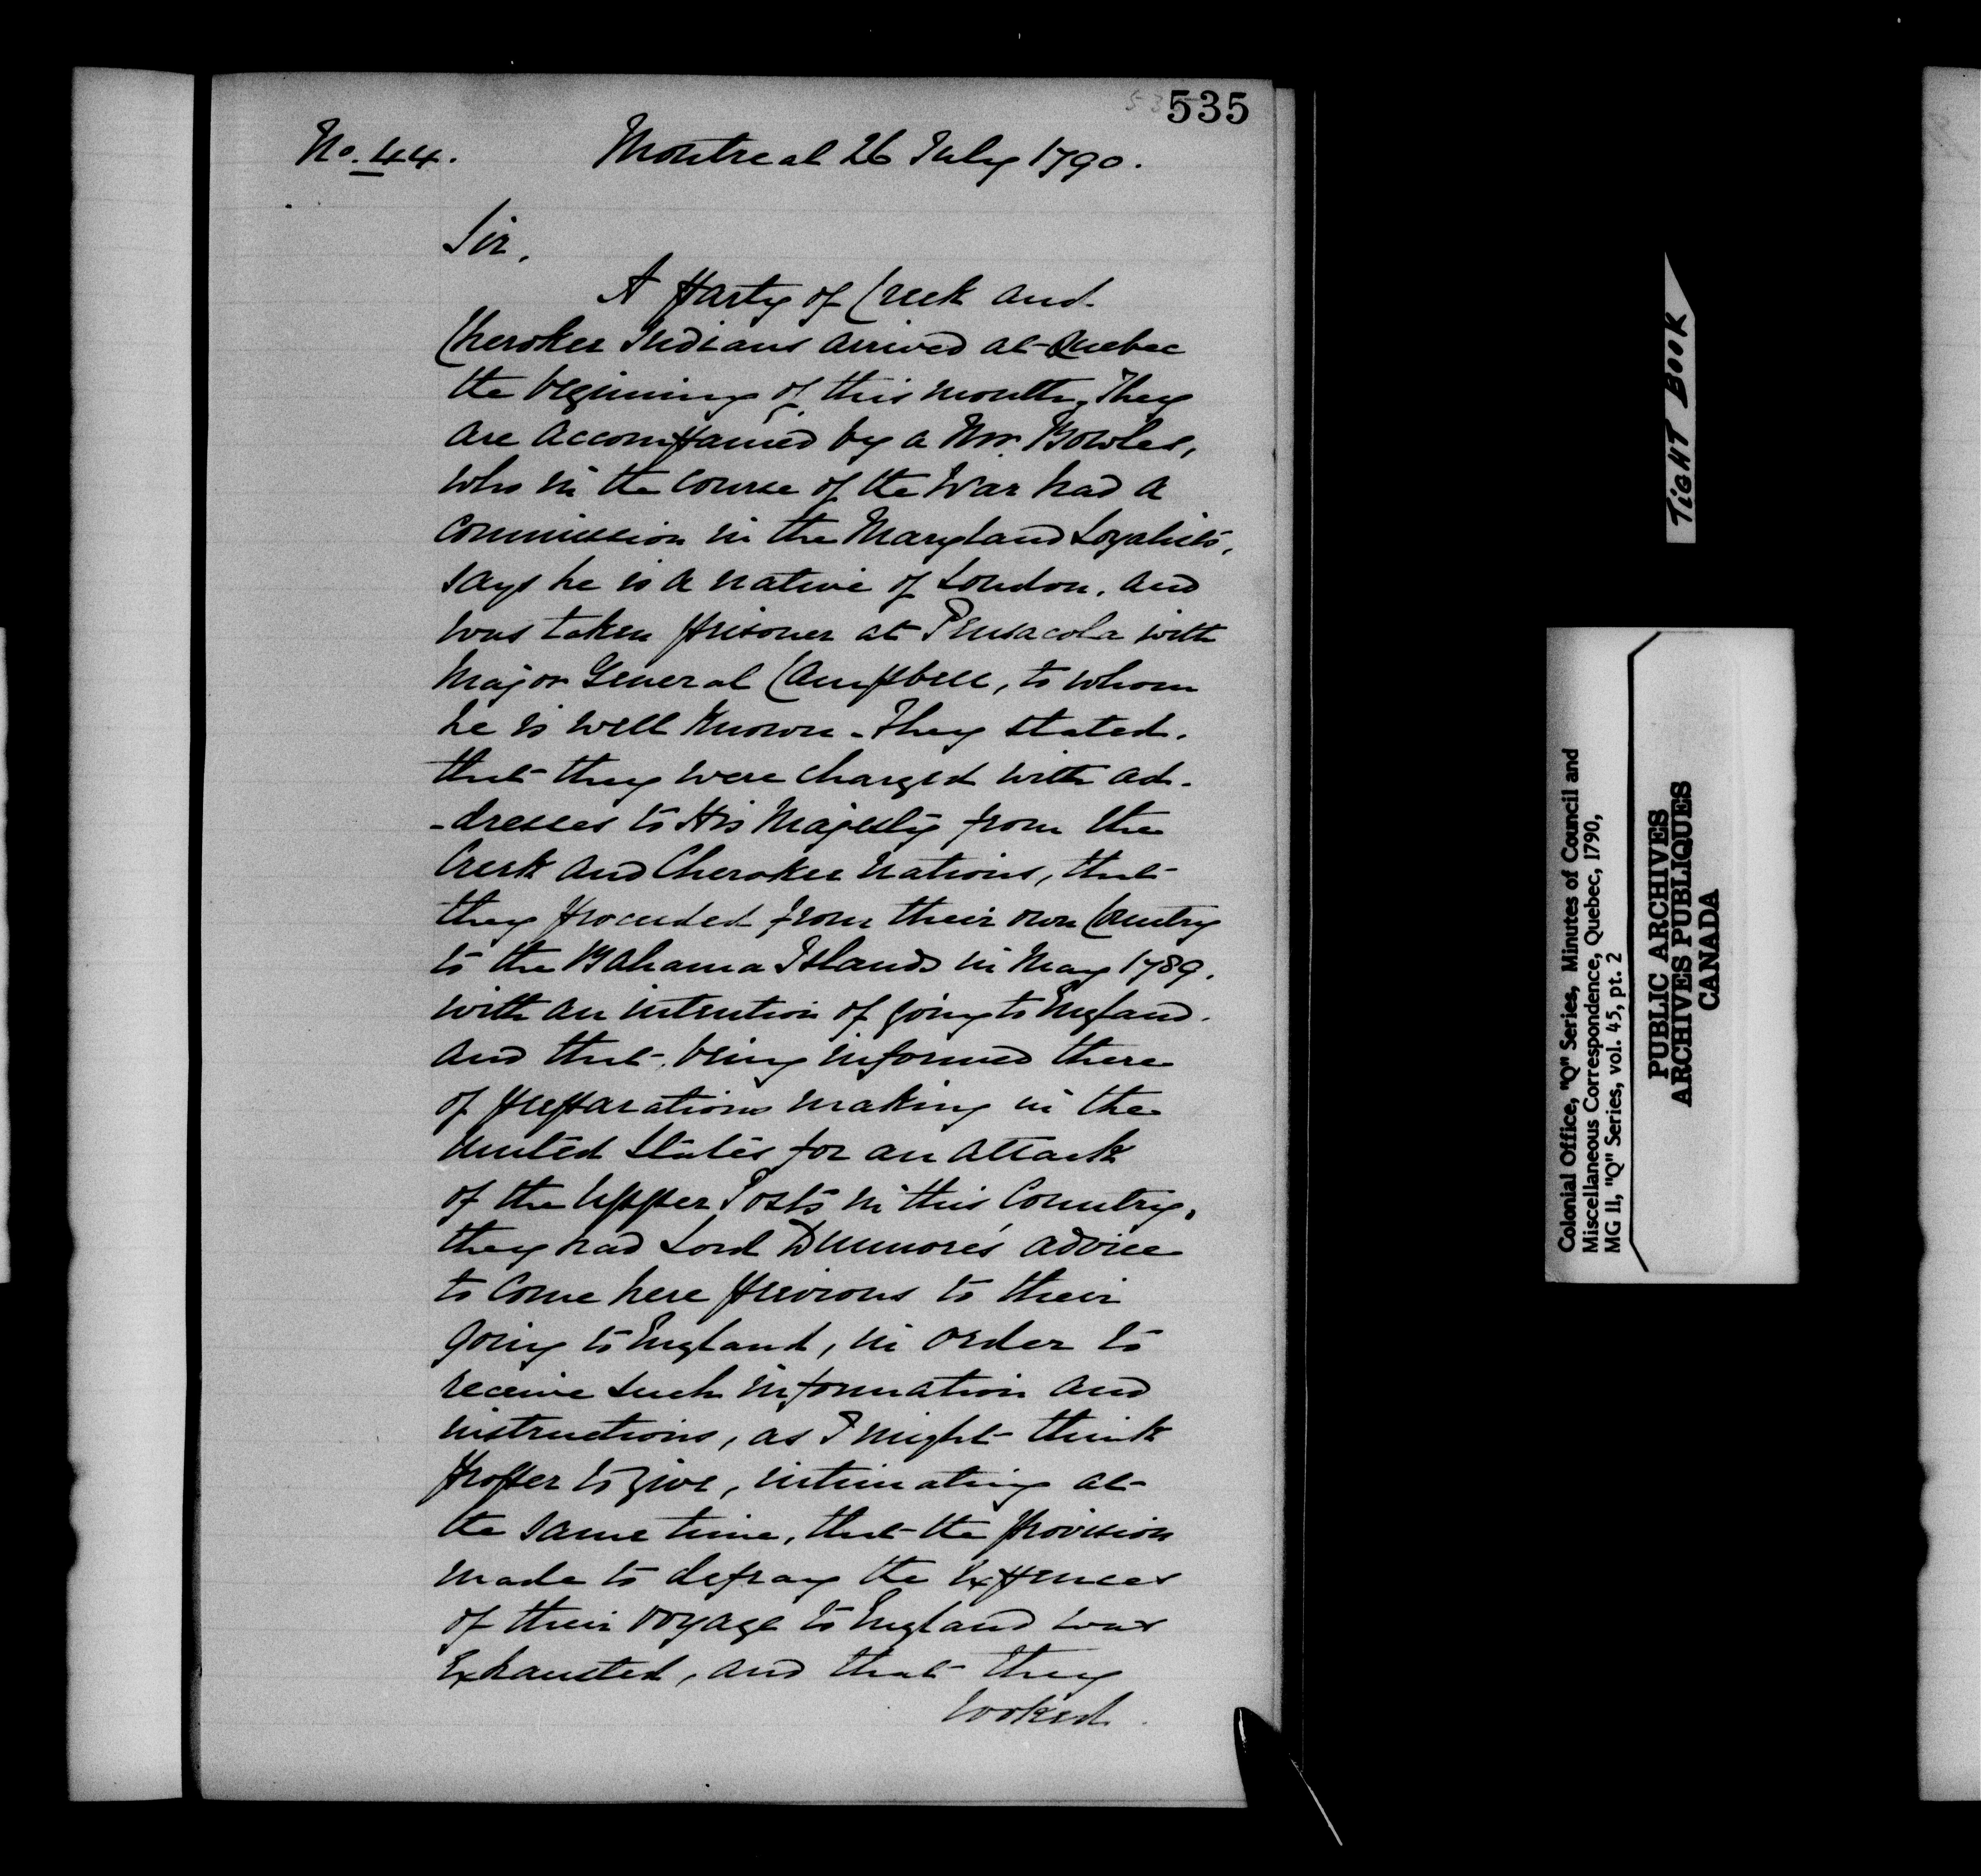 535
No. 44. Montreal 26 July 1790.
Sir,
A party of Creek and
Cherokee Indians arrived at Quebec
the beginning of this month, They
are accompanied by a Mr. Bowles,
who in the course of the War had a
Commission in the Maryland Loyalists,
says he is a native of London, and
was taken prisoner at Pensacola with
Major General Campbell, to whom
he is well known. They stated,
that they were charged with ad-
-dresses to His Majesty from the
Creek and Cherokee Nations, that
they proceeded from their own Country
to the Bahama Islands in May 1789.
with an intention of going to England.
and that, being informed there
of preparations making in the
United States for an attack
of the Upper Posts in this Country,
they had Lord Dunmore's advice
to come here previous to their
going to England, in order to
receive such information and
instructions, as I might think
proper to give, intimating at
the same time, that the provision
made to defray the Expences
of their voyage to England was
Exhausted, and that they
looked
TIGHT BOOK
Colonial Office, "Q" Series, Minutes of Council and
Miscellaneous Correspondence, Quebec, 1790,
MG 11, "Q" Series, vol. 45, pt. 2
PUBLIC ARCHIVES
ARCHIVES PUBLIQUES
CANADA